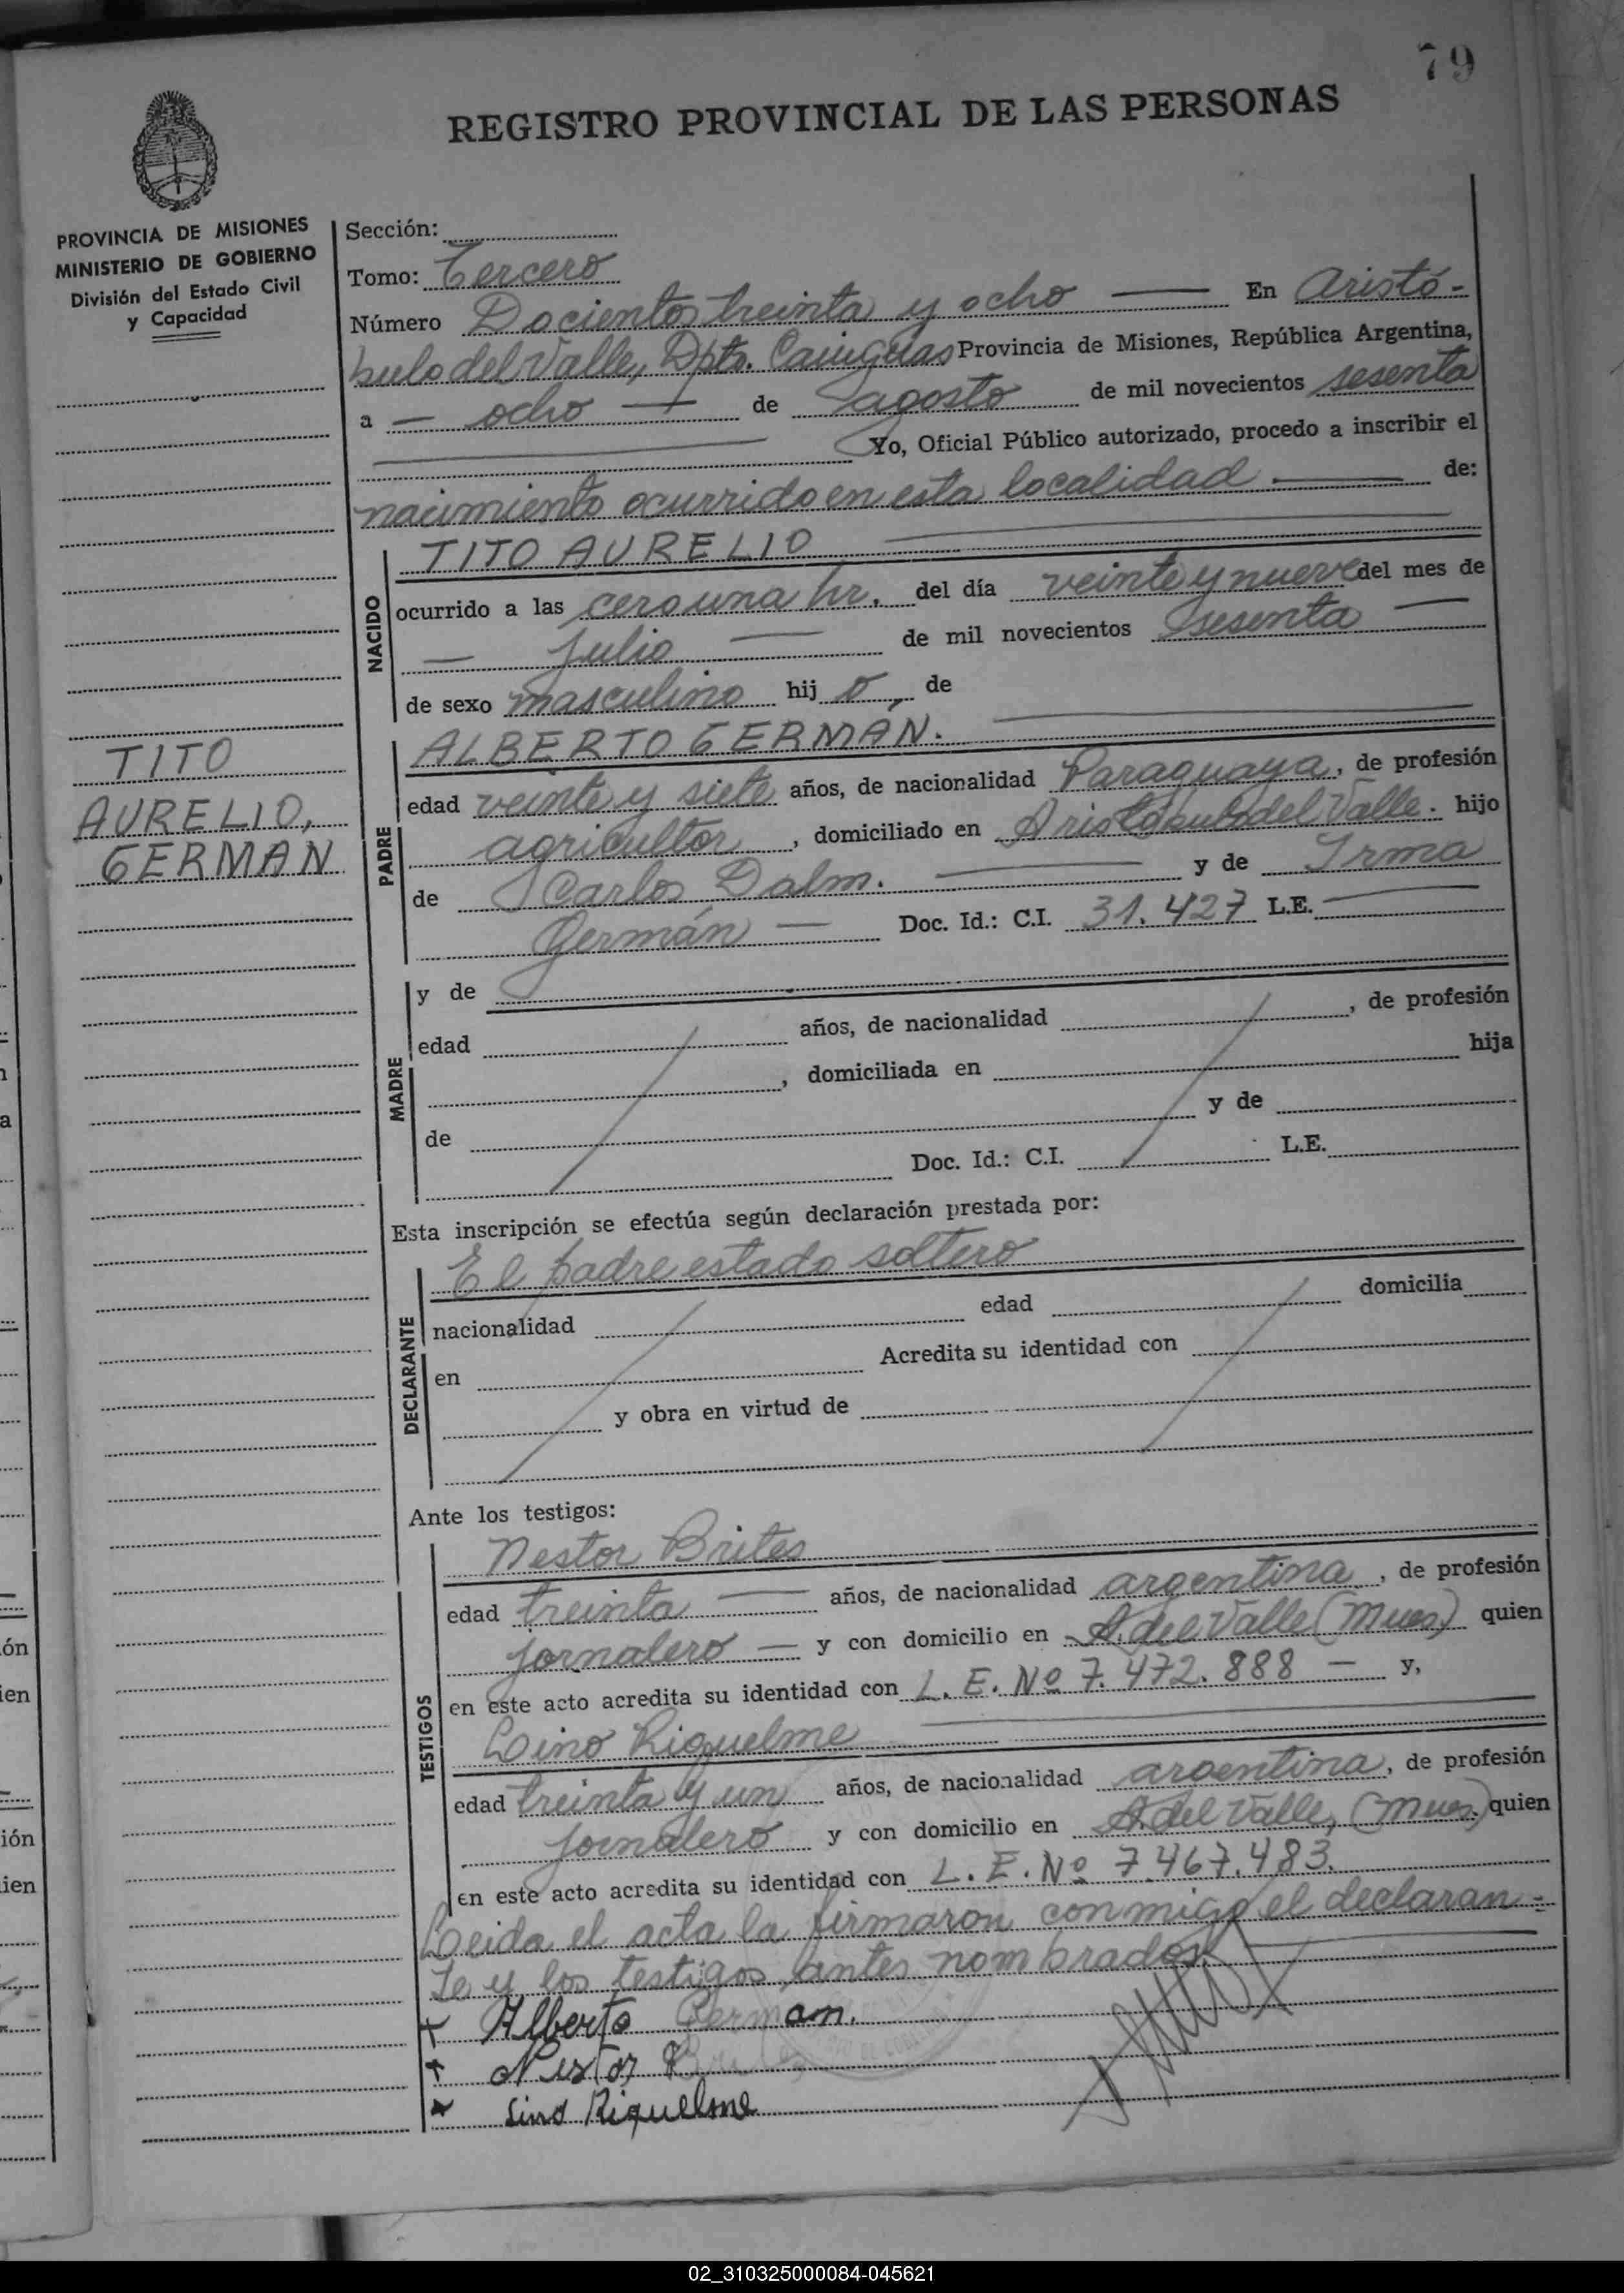 79
REGISTRO PROVINCIAL DE LAS PERSONAS
PROVINCIA DE MISIONES
MINISTERIO DE GOBIERNO
División del Estado Civil
y Capacidad
TITO
AURELIO,
GERMAN
Sección:
Tomo: Tercero
Número Docientos treinta y ocho — En Aristó-
bulo del Valle, Dpto. Cainguas Provincia de Misiones, República Argentina,
a — ocho — de agosto de mil novecientos sesenta
Yo, Oficial Público autorizado, procedo a inscribir el
nacimiento ocurrido en esta localidad — de:
NACIDO
TITO AURELIO
ocurrido a las cero una hr. del día veinte y nueve del mes de
— Julio — de mil novecientos sesenta —
de sexo masculino hijo, de
PADRE
ALBERTO GERMÁN.
edad veinte y siete años, de nacionalidad Paraguaya, de profesión
agricultor, domiciliado en Aristóbulo del Valle. hijo
de Carlos Dalm. — y de Irma
Germán — Doc. Id.: C.I. 31.427 L.E. —
MADRE
y de
edad años, de nacionalidad , de profesión
, domiciliada en hija
de y de
Doc. Id.: C.I. L.E.
Esta inscripción se efectúa según declaración prestada por:
DECLARANTE
El padre estado soltero
nacionalidad edad domicilia
en Acredita su identidad con
y obra en virtud de
Ante los testigos:
TESTIGOS
Nestor Brites
edad treinta — años, de nacionalidad argentina, de profesión
jornalero — y con domicilio en A. del Valle (Mnes) quien
en este acto acredita su identidad con L. E. Nº 7.472.888 — y,
Lino Riquelme
edad treinta y un años, de nacionalidad argentina, de profesión
jornalero y con domicilio en A. del Valle, (Mnes) quien
en este acto acredita su identidad con L. E. Nº 7.467.483.
Leida el acta la firmaron conmigo el declaran-
te y los testigos antes nombrados.
Alberto German.
Nestor B
Lino Riquelme
02_310325000084-045621